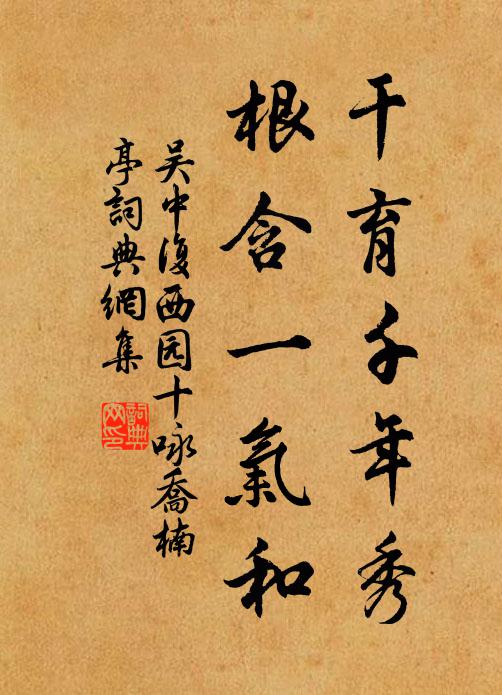 干育千年秀
根含一氣和
吴中復西园十咏喬楠
亭詞典網集
詞典
网印